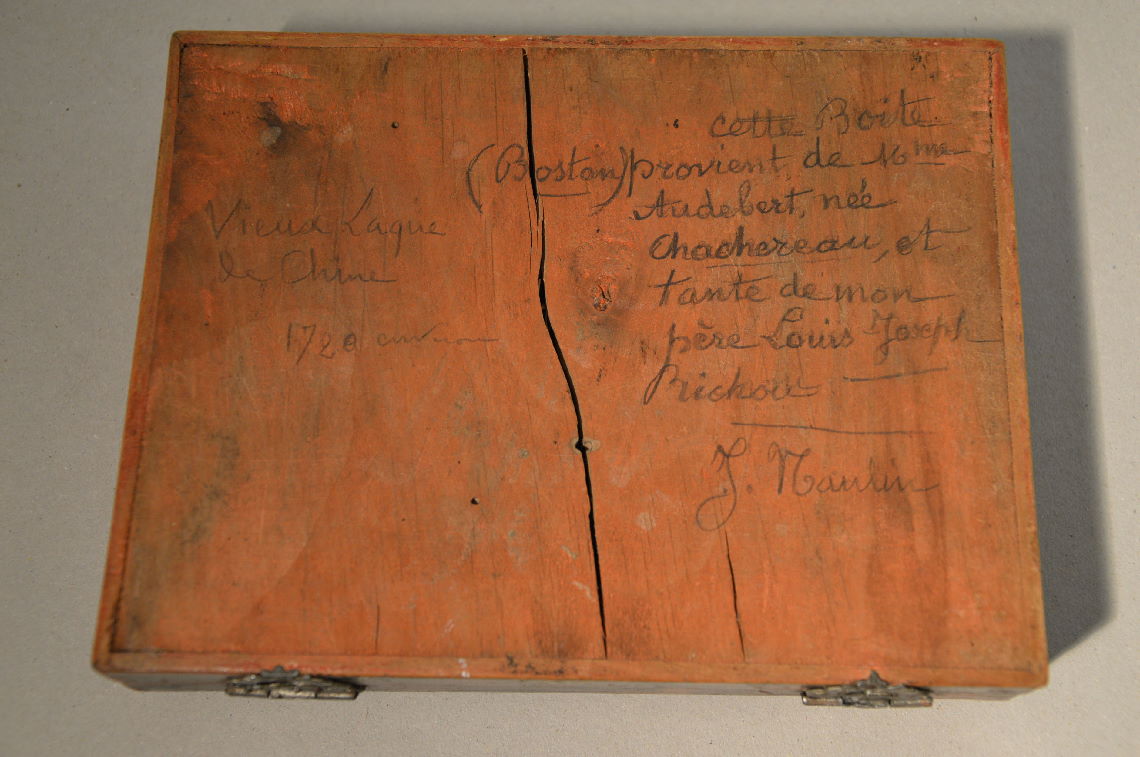 Vieux Laque
de Chine
1720 environ
cette Boîte
(Boston) provient de Mme
Audebert, née
Chachereau, et
tante de mon
père Louis Joseph
Richou
J. Naulin